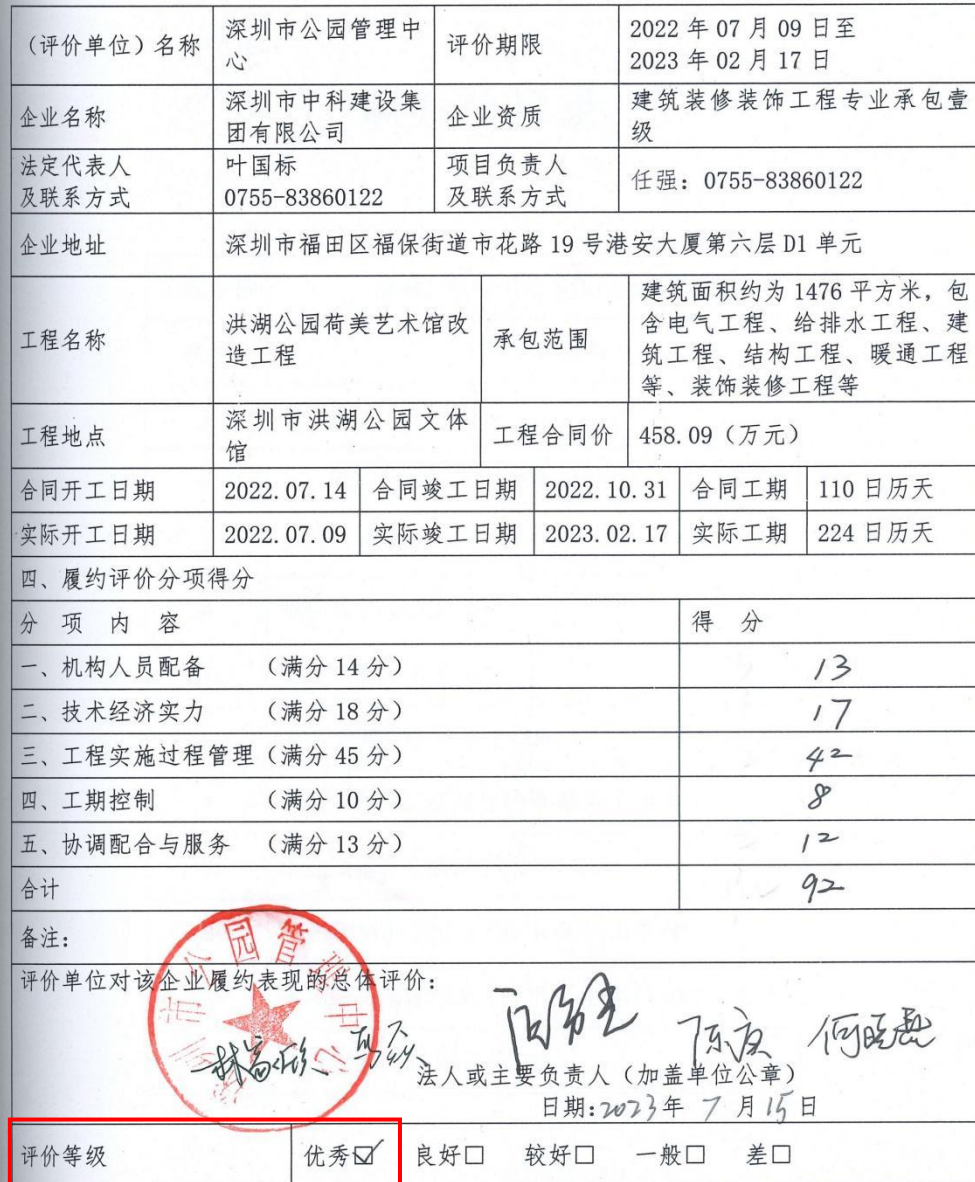 （评价单位）名称 深圳市公园管理中 评价期限 2022 年 07 月 09 日至
心 2023 年 02 月 17 日
企业名称 深圳市中科建设集 企业资质 建筑装修装饰工程专业承包壹
团有限公司 级
法定代表人 叶国标 项目负责人 任强：0755-83860122
及联系方式 0755-83860122 及联系方式
企业地址 深圳市福田区福保街道市花路 19 号港安大厦第六层 D1 单元
工程名称 洪湖公园荷美艺术馆改 承包范围 建筑面积约为 1476 平方米，包
造工程 含电气工程、给排水工程、建
筑工程、结构工程、暖通工程
等、装饰装修工程等
工程地点 深圳市洪湖公园文体 工程合同价 458.09（万元）
馆
合同开工日期 2022.07.14 合同竣工日期 2022.10.31 合同工期 110 日历天
实际开工日期 2022.07.09 实际竣工日期 2023.02.17 实际工期 224 日历天
四、履约评价分项得分
分 项 内 容 得 分
一、机构人员配备 （满分 14 分） 13
二、技术经济实力 （满分 18 分） 17
三、工程实施过程管理（满分 45 分） 42
四、工期控制 （满分 10 分） 8
五、协调配合与服务 （满分 13 分） 12
合计 92
备注：
评价单位对该企业履约表现的总体评价：
深圳市公园管理中心
何晓磊
法人或主要负责人（加盖单位公章）
日期：2023年 7 月 15 日
评价等级 优秀☑ 良好□ 较好□ 一般□ 差□